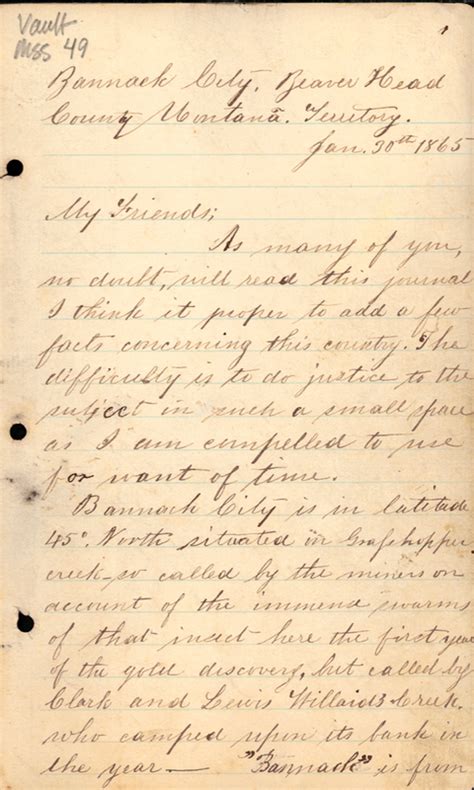 Vault
Mss 49
1
Bannack City, Beaver Head
County Montana. Territory.
Jan. 30th 1865
My Friends;
As many of you,
no doubt, will read this journal
I think it proper to add a few
facts concerning this country. The
difficulty is to do justice to the
subject in such a small space
as I am compelled to use
for want of time.
Bannack City is in latitude
45°. North situated in Grasshopper
creek-so called by the miners on
account of the immend swarms
of that insect here the first year
of the gold discovery, but called by
Clark and Lewis Willaids Creek.
who camped upon its bank in
the year — "Bannack" is from